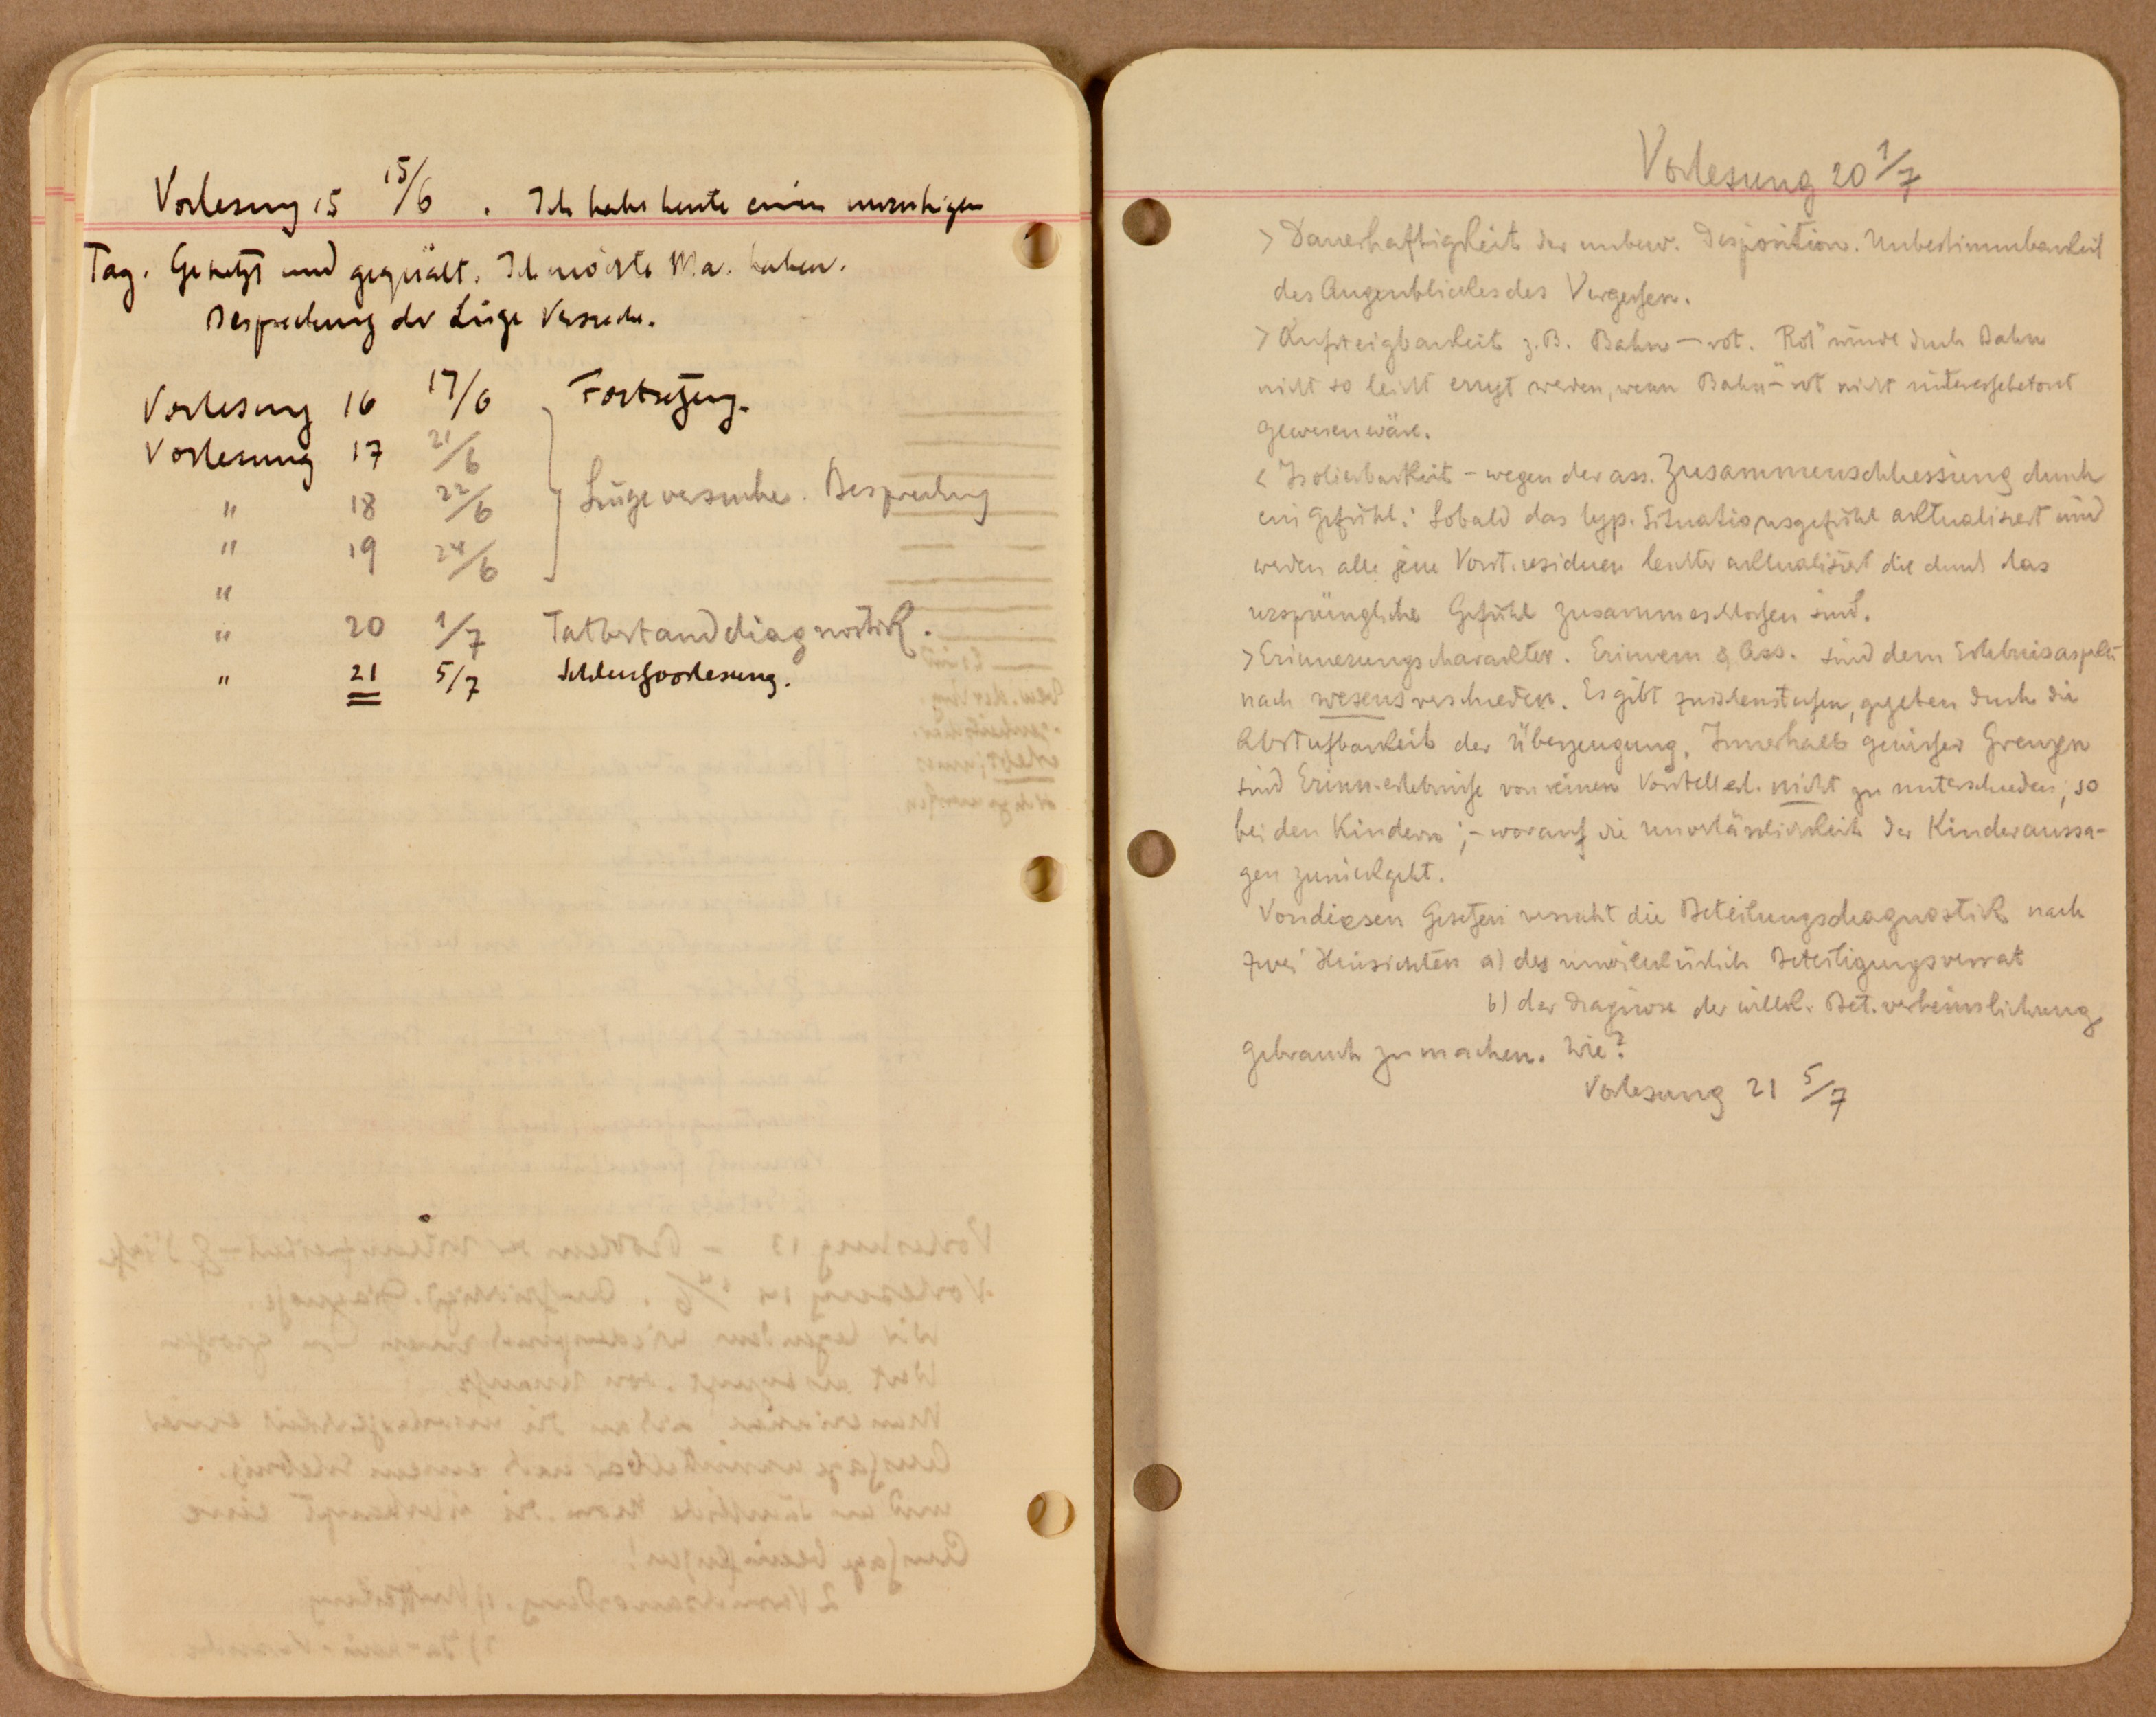 Vorlesung 15 15/6 . Ich habe heute einen unruhigen
Tag. Gehetzt und gequält. Ich möchte Ma. haben.
Besprechung der Lüge Versuche.
Vorlesung 16 17/6 Fortsetzung.
Vorlesung 17 21/6
" 18 22/6 Lügeversuche. Besprechung
" 19 24/6
"
" 20 1/7 Tatbestanddiagnostik.
" 21 5/7 Schlußvorlesung.
Vorlesung 20 1/7
> Dauerhaftigkeit der unbew. Disposition. Unbestimmbarkeit
des Augenblickes des Vergessen.
> Aufsteigbarkeit z.B. Bahn – rot. Rot" würde durch Bahn
nicht so leicht erregt werden, wenn Bahn – rot nicht interessebetont
gewesen wäre.
< Isolierbarkeit – wegen der ass. Zusammenschliessung durch
ein Gefühl: Sobald das typ. Situationsgefühl aktualisiert wird
werden alle jene Vorst.residuen leichter aktualisiert die durch das
ursprüngliche Gefühl zusammeschlossen sind.
> Erinnerungscharakter. Erinnern & Ass. sind dem Erlebnisaspekt
nach wesensverschieden. Es gibt zwischenstufen, gegeben durch die
Abstufbarkeit der Überzeugung. Innerhalb gewisser Grenzen
sind Erinn.erlebnisse von reinen Vorstell.erl. nicht zu unterscheiden, so
bei den Kindern; – worauf die unverlässlichkeit der Kinderaussa-
gen zurückgeht.
Von diesen Gesetzen versucht die Beteilungsdiagnostik nach
zwei Hinsichten a) des unwillkürlich Beteiligungsverrat
b) der Diagnose der willk. Bet.verheimlichung
gebrauch zu machen. Wie?
Vorlesung 21 5/7